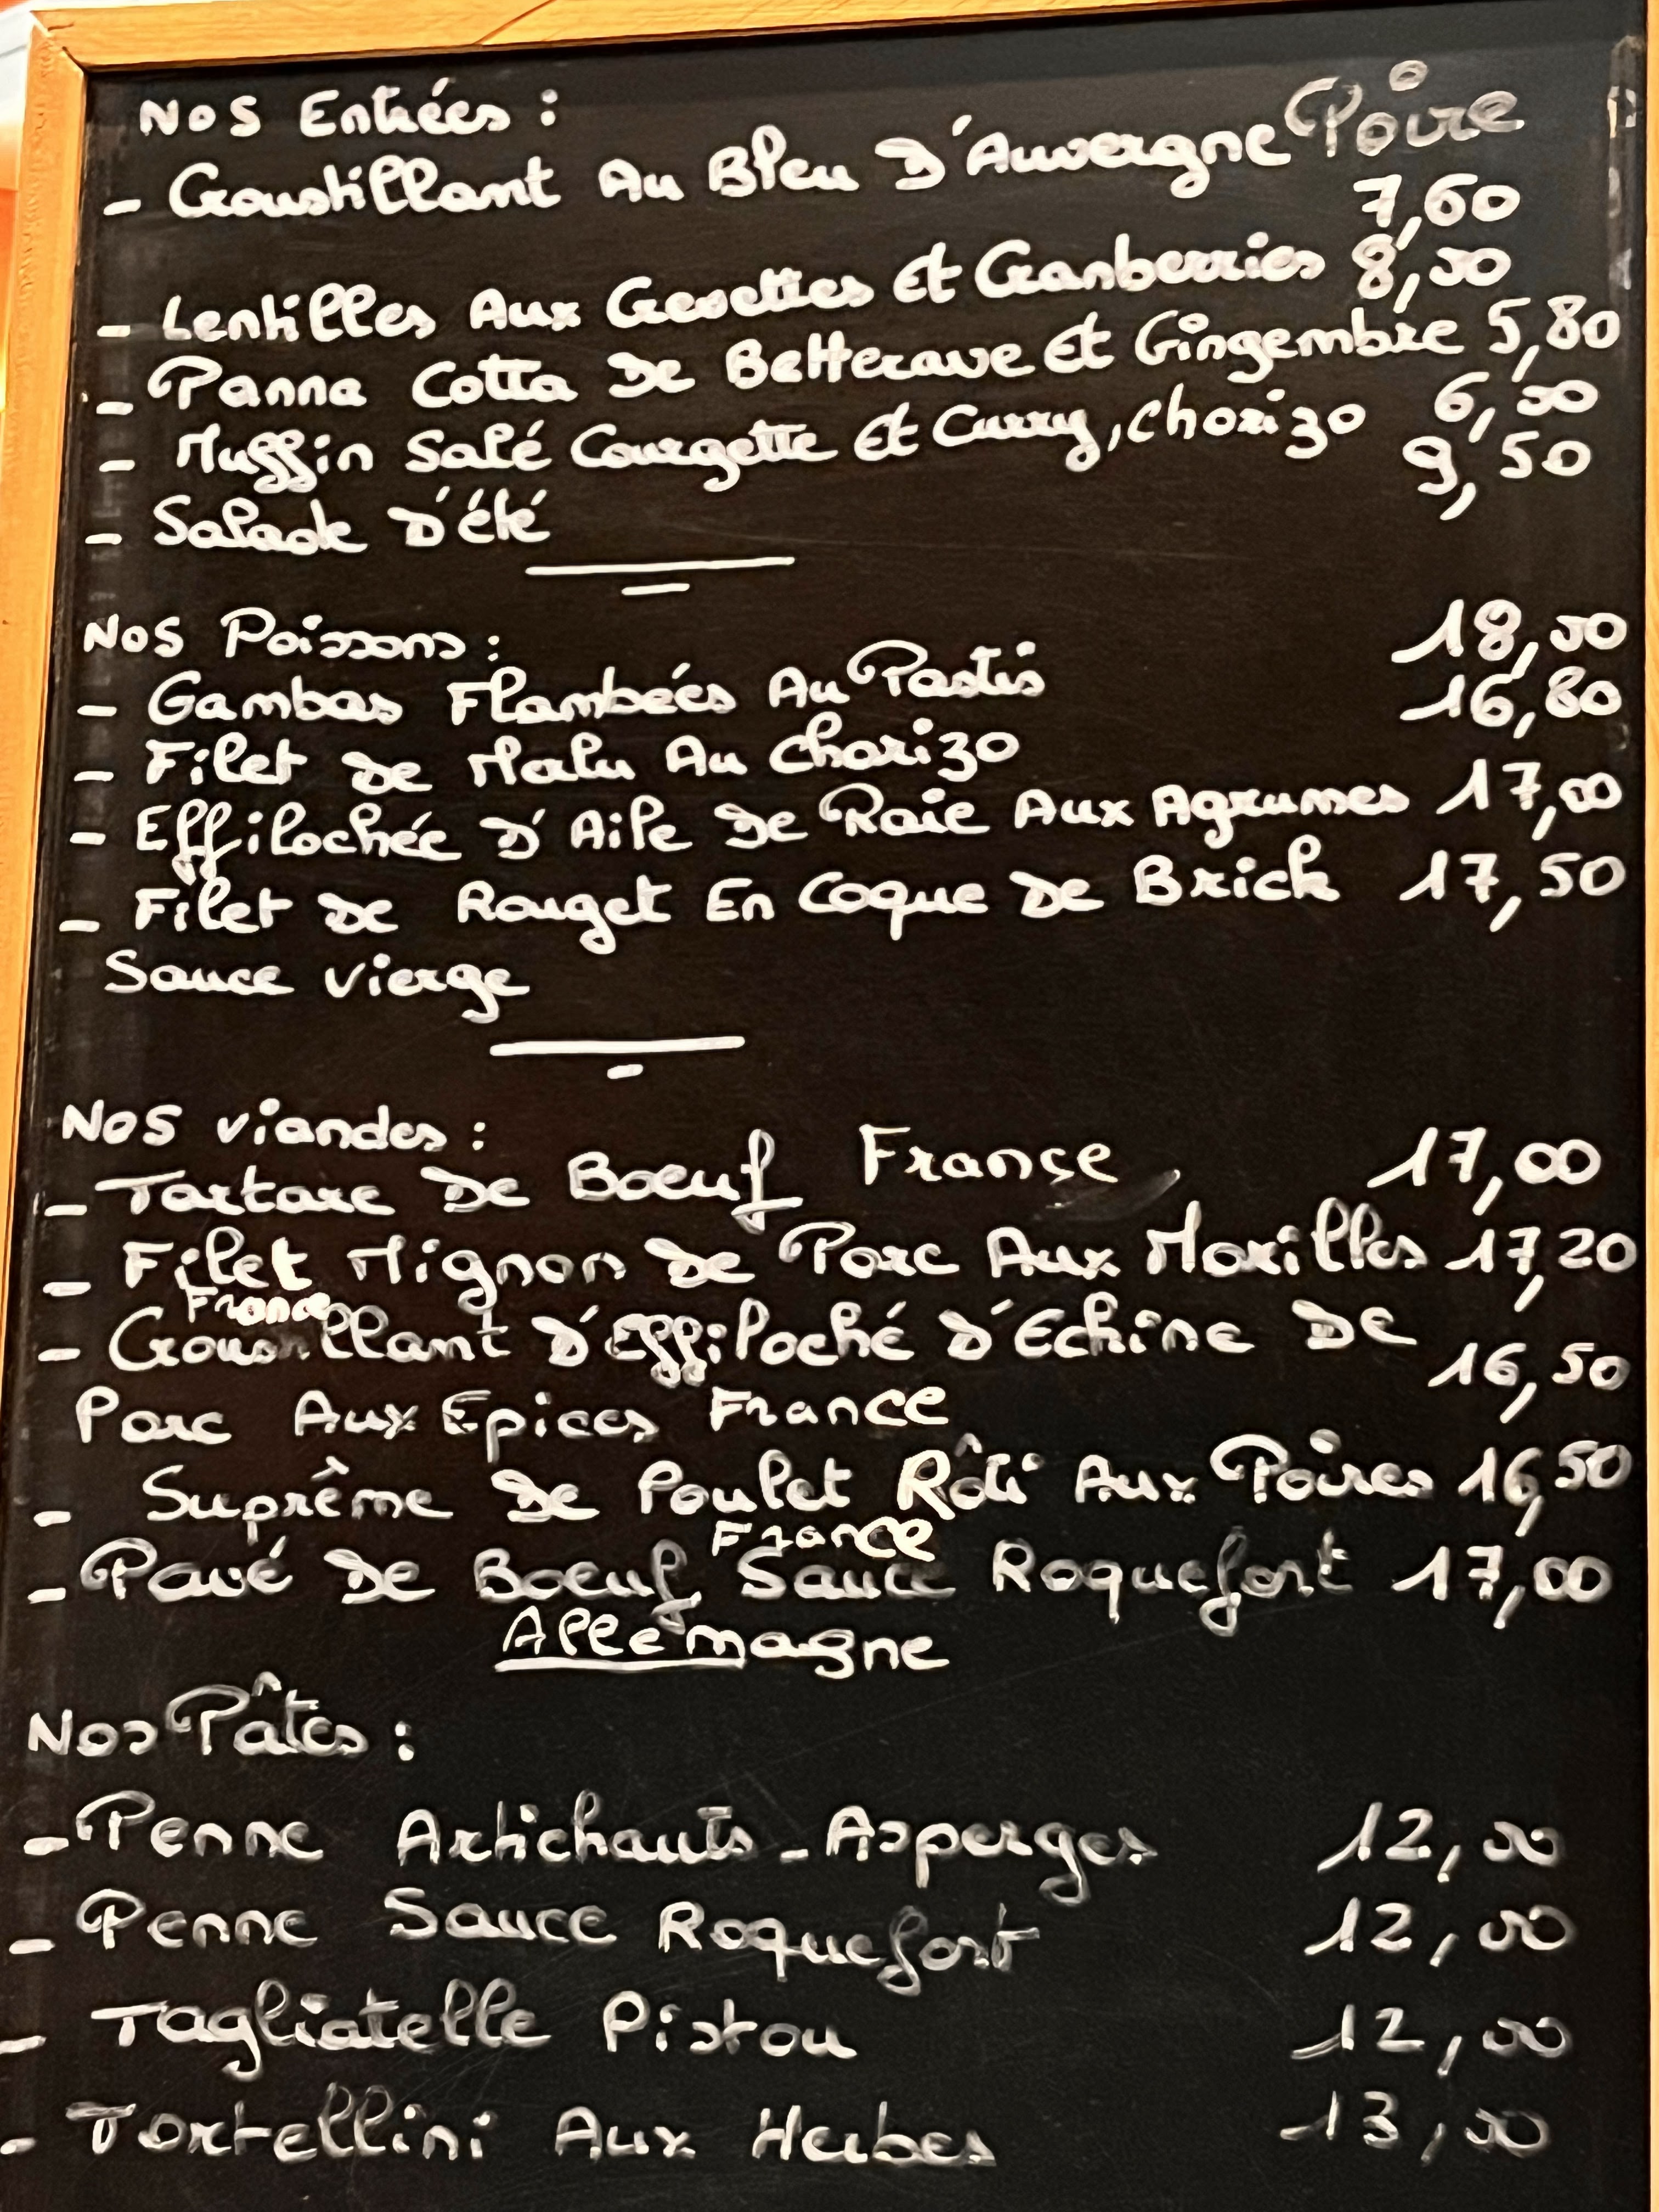 Nos Entrées :
- Croustillant Au Bleu D'Auvergne Poire
7,60
- Lentilles Aux Gesottes Et Cranberries 8,00
- Panna Cotta De Betterave Et Gingembre 5,80
- Muffin Salé Courgette Et Curry, chorizo 6,00
- Salade D'été 9,50
Nos Poissons :
- Gambas Flambées Au Pastis 18,00
- Filet de Merlu Au Chorizo 16,80
- Effilochée D'Aile De Raie Aux Agrumes 17,00
- Filet de Rouget En Coque De Brick 17,50
Sauce vierge
Nos viandes :
- Tartare De Boeuf France 17,00
- Filet Mignon De Porc Aux Morilles 17,20
France
- Croustillant D'Effiloché D'Echine De
16,50
Porc Aux Epices France
- Suprême De Poulet Rôti Aux Poires 16,50
France
- Pavé De Boeuf Sauce Roquefort 17,00
Allemagne
Nos Pâtes :
- Penne Artichauts - Asperges 12,00
- Penne Sauce Roquefort 12,00
- Tagliatelle Pistou 12,00
- Tortellini Aux Herbes 13,00